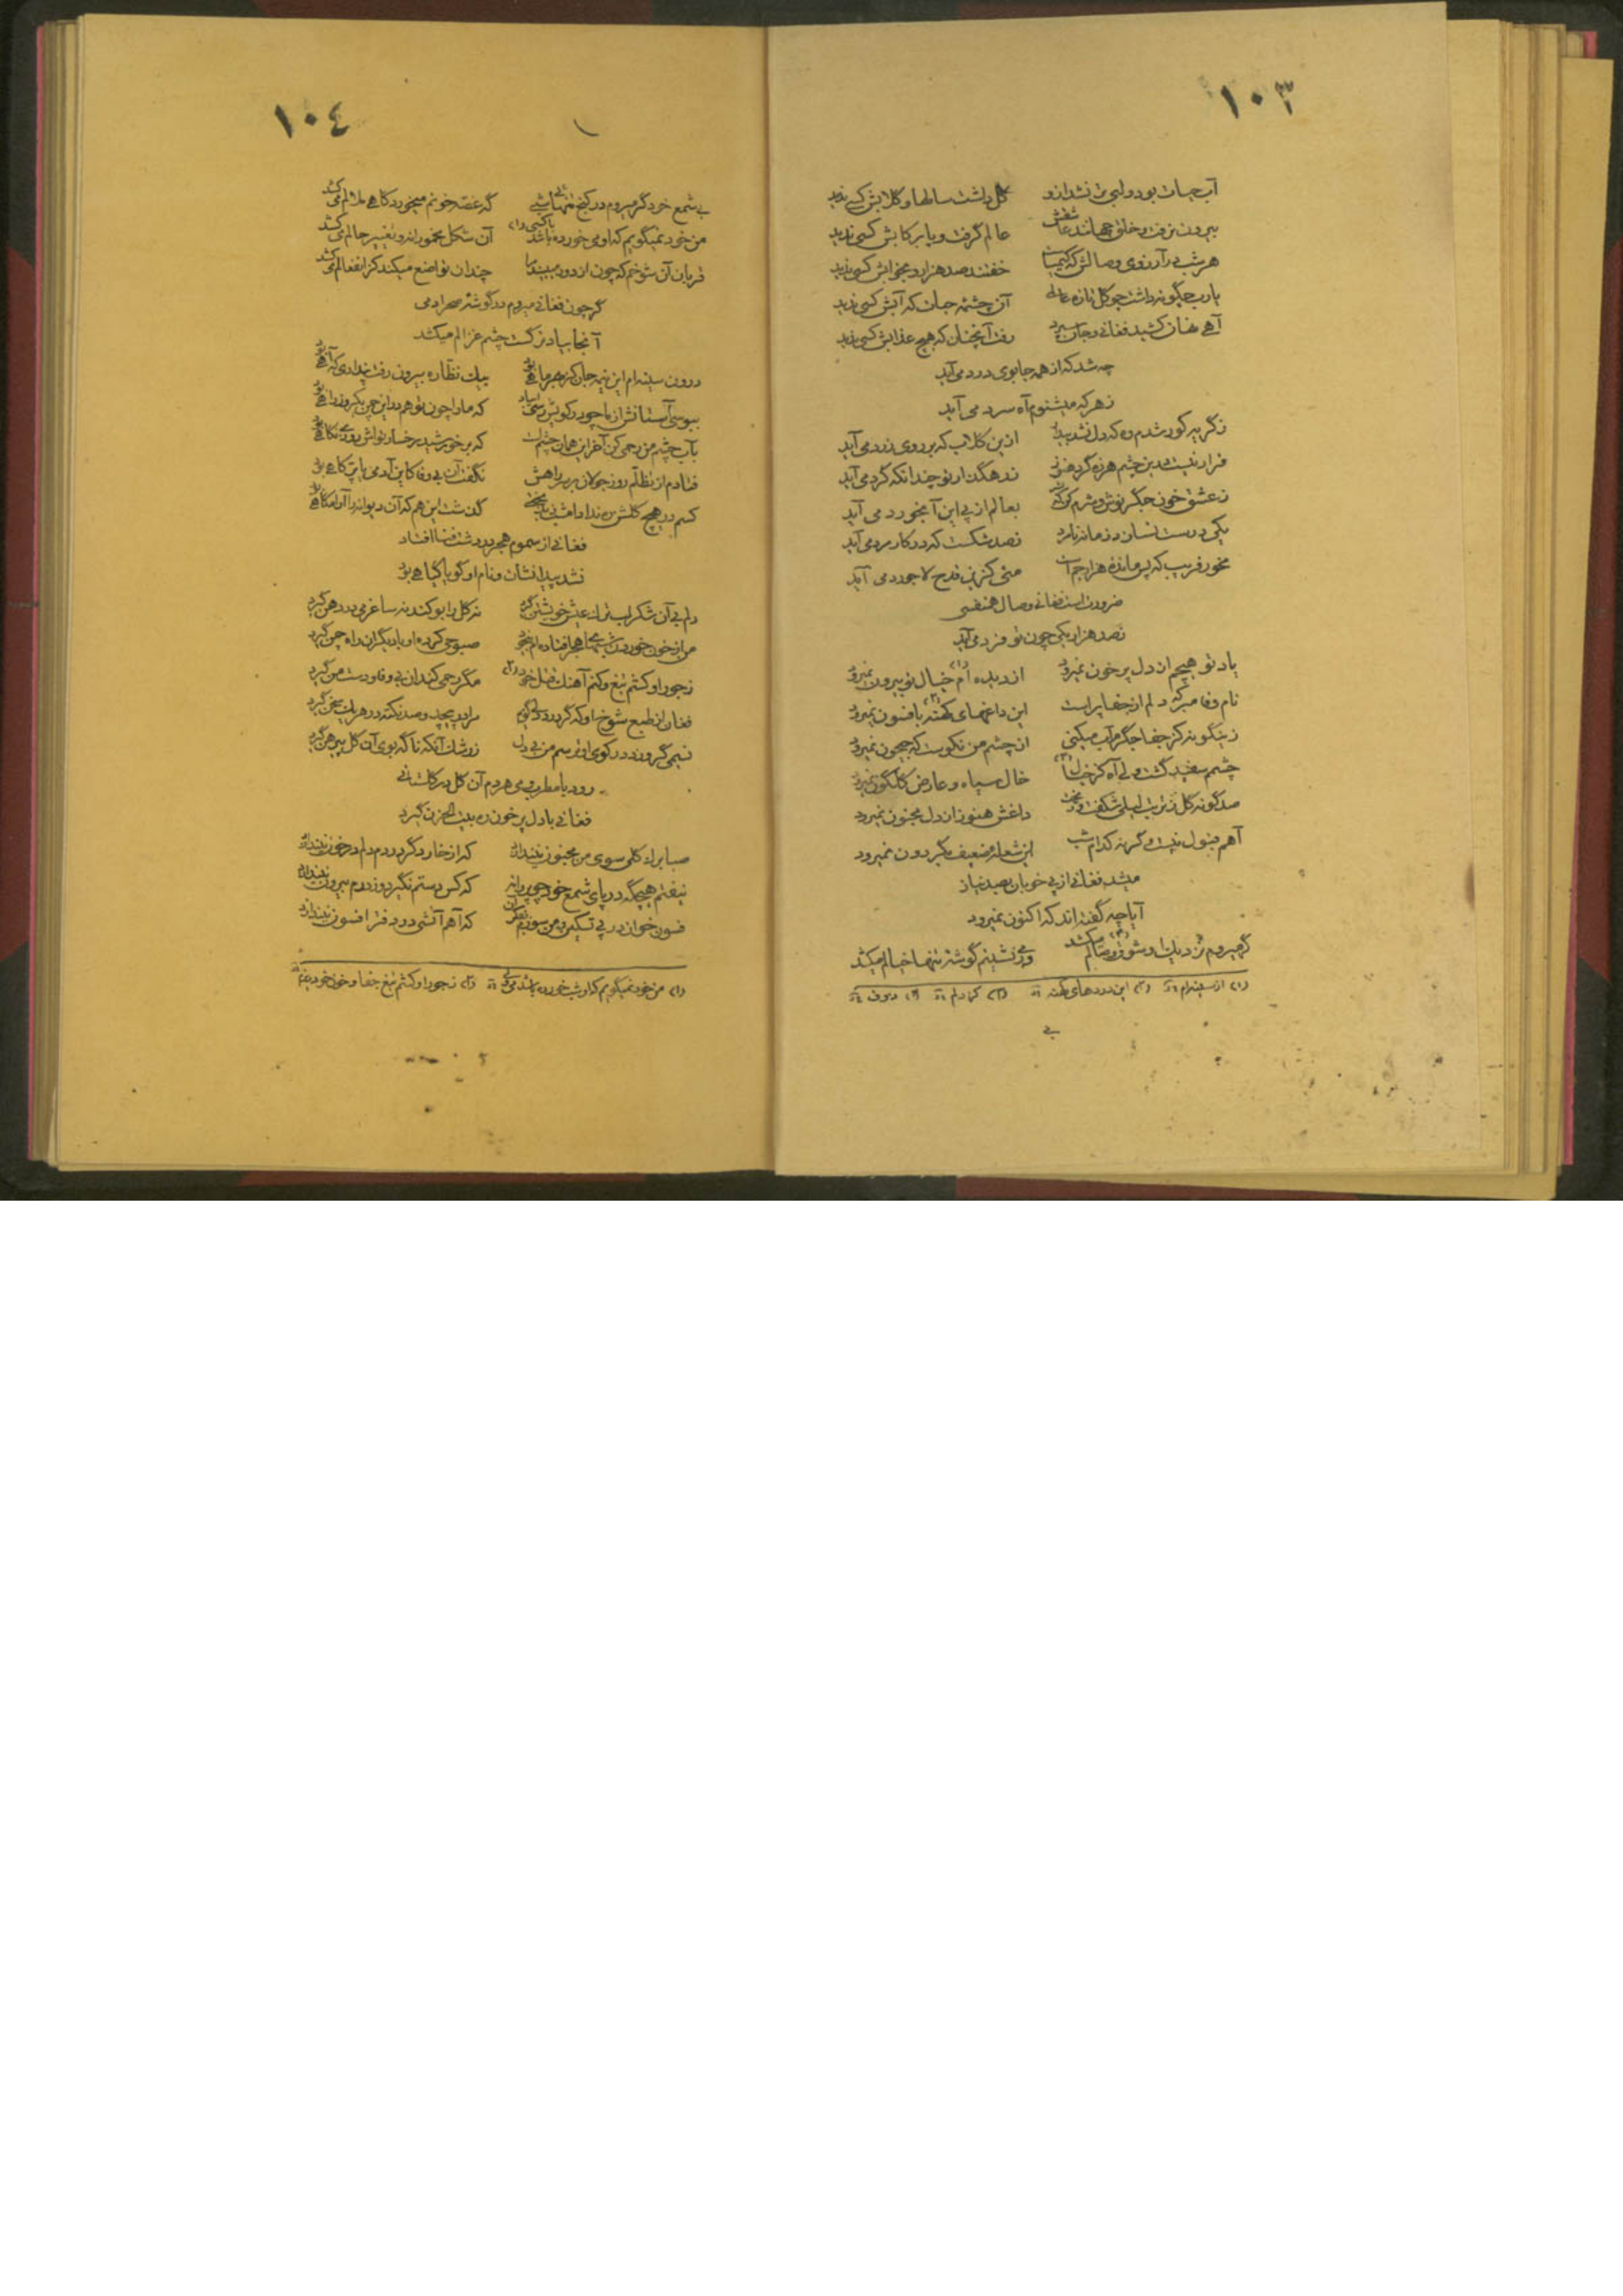 ١٠٣
آب حیات بود و لبی تر نشد ازو گل داشت سالها و گلابش کسی ندید
بیرون نرفت و خلق جهانند عاشقش عالم گرفت و پا برکابش کسی ندید
هر شب در آرزوی وصالش که کیمیاست خفتند صد هزار و بخوابش کسی ندید
یارب چگونه داشت چو گل تازه عالمی آن چشمهٔ حیات که آبش کسی ندید
آهی نهان کشید فغانی و جان سپرد رفت آنچنان که هیچ عذابش کسی ندید
چه شد که از همه جا بوی درد می آید
زهر که میشنوم آه سرد می آید
زگریه کور شدم وه که دل نشد بیدار ازین گلاب که بر روی زرد می آید
قرار نیست درین چشم هرزه گرد هنوز زرهگذار تو چندانکه گرد می آید
زعشق خون جگر نوش و شرم کن که بعالم از پی این آبخورد می آید
یکی درست نشان در زمانه ندارد نصد شکست که در کار مرد می آید
مخور فریب که پس ماندهٔ هزار جم است میی کزین قدح لاجورد می آید
ضرورت است فغانی وصال همنفسی
نصد هزار یکی چون تو فرد می آید
یاد تو هیچم از دل پر خون نمیرود از دیده ام (١) خیال تو بیرون نمیرود
نام وفا مبر که دلم از جفا پر است این داغهای کهنه (٢) بافسون نمیرود
زینگونه کز جفا جگرم آب میکنی از چشم من نکوست که جیحون نمیرود
چشمم سفید گشت ولی آه کز خیال (٣) خال سیاه و عارض گلگون نمیرود
صد گونه گل زتربت لیلی شکفت و ریخت داغش هنوز از دل مجنون نمیرود
آهم قبول نیست وگرنه کدام شب این شعلهٔ ضعیف بگردون نمیرود
میشد فغانی از پی خوبان بصد نیاز
آیا چه گفته اند که اکنون نمیرود
گر میروم نزدیک او شوق وصالم (٤) میکشد ور می نشینم گوشه تنها خیالم میکشد
(١) از سینه ام (٢) این دردهای کهنه (٣) کز دلم (٤)
بی
١٠٤
بی شمع خود گر میروم در کنج تنهایی شبی گه غصه خونم میخورد گاهی ملالم میکشد
من خود نمیگویم که او می خورده باشد با کسی (١) آن شکل مخمورانه و تغییر حالم میکشد
قربان آن شوخم که چون از دور میبیند مرا چندان تواضع میکند کز انفعالم میکشد
گر چون فغانی میروم در گوشهٔ صحرا دمی
آنجا بیاد نرگست چشم غزالم میکشد
درون سینه ام این نیمه جان کز هجر ماهی بود بیک نظاره بیرون رفت پنداری که آهی بود
ببوسی آستانش از ما چو در کویش رسی ای باد که ما را چون تو هم در این چمن یکروز راهی بود
بآب چشم من رحمی کن آخر این همان چشم است که بر خورشید رخسار تواش روزی نگاهی بود
فتادم از تظلم روز جولان بر سر راهش نگفت آن بی وفا کاین آدمی یا پر کاهی بود
کسم در هیچ گلشن ره نداد امشب ز بدبختی گذشت این هم که آن دیوانه را آرامگاهی بود
فغانی از سموم هجر در دشت فنا افتاد
نشد پیدا نشان و نام او گویا گیاهی بود
دلم بی آن شکر لب ترک عیش خویشتن گیرد نه گل را بو کند نه ساغر می در دهن گیرد
من از خون خوردن شبهای هجر افتاده ام بیخود صبوحی کرده او با دیگران راه چمن گیرد
زجور او کشم تیغ و کنم آهنگ قتل خود (٢) مگر رحمی کند آن بی وفا و دست من گیرد
فغان از طبع شوخ او که گر درد دلی گویم مرا پیچد و صد نکته در هر یک سخن گیرد
نسیمی گر وزد در کوی او ترسم من بی دل زرشک آنکه ناگه بوی آن گل پیرهن گیرد
رود با مطرب و می هر دم آن گل در گلستانی
فغانی با دل پر خون ره بیت الحزن گیرد
صبا برگ گلی سوی من محزون نیندازد که از خار دگر دردم دلم در خون نیندازد
نیفتم هیچگه در پای شمع خود چو پروانه که کس دستم نگیرد و زدرم بیرون نیندازد
فسون خوان در پی تسکین من سوزم ازین که آهم آتشی در دفتر افسون نیندازد
(١) من خود نمیگویم که او شب خورده باشد می (٢) زجور او کشم تیغ جفا و خون خود ریزم